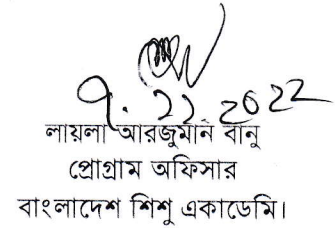 লায়লা আরজুমান বানু
প্রোগ্রাম অফিসার
বাংলাদেশ শিশু একাডেমি।